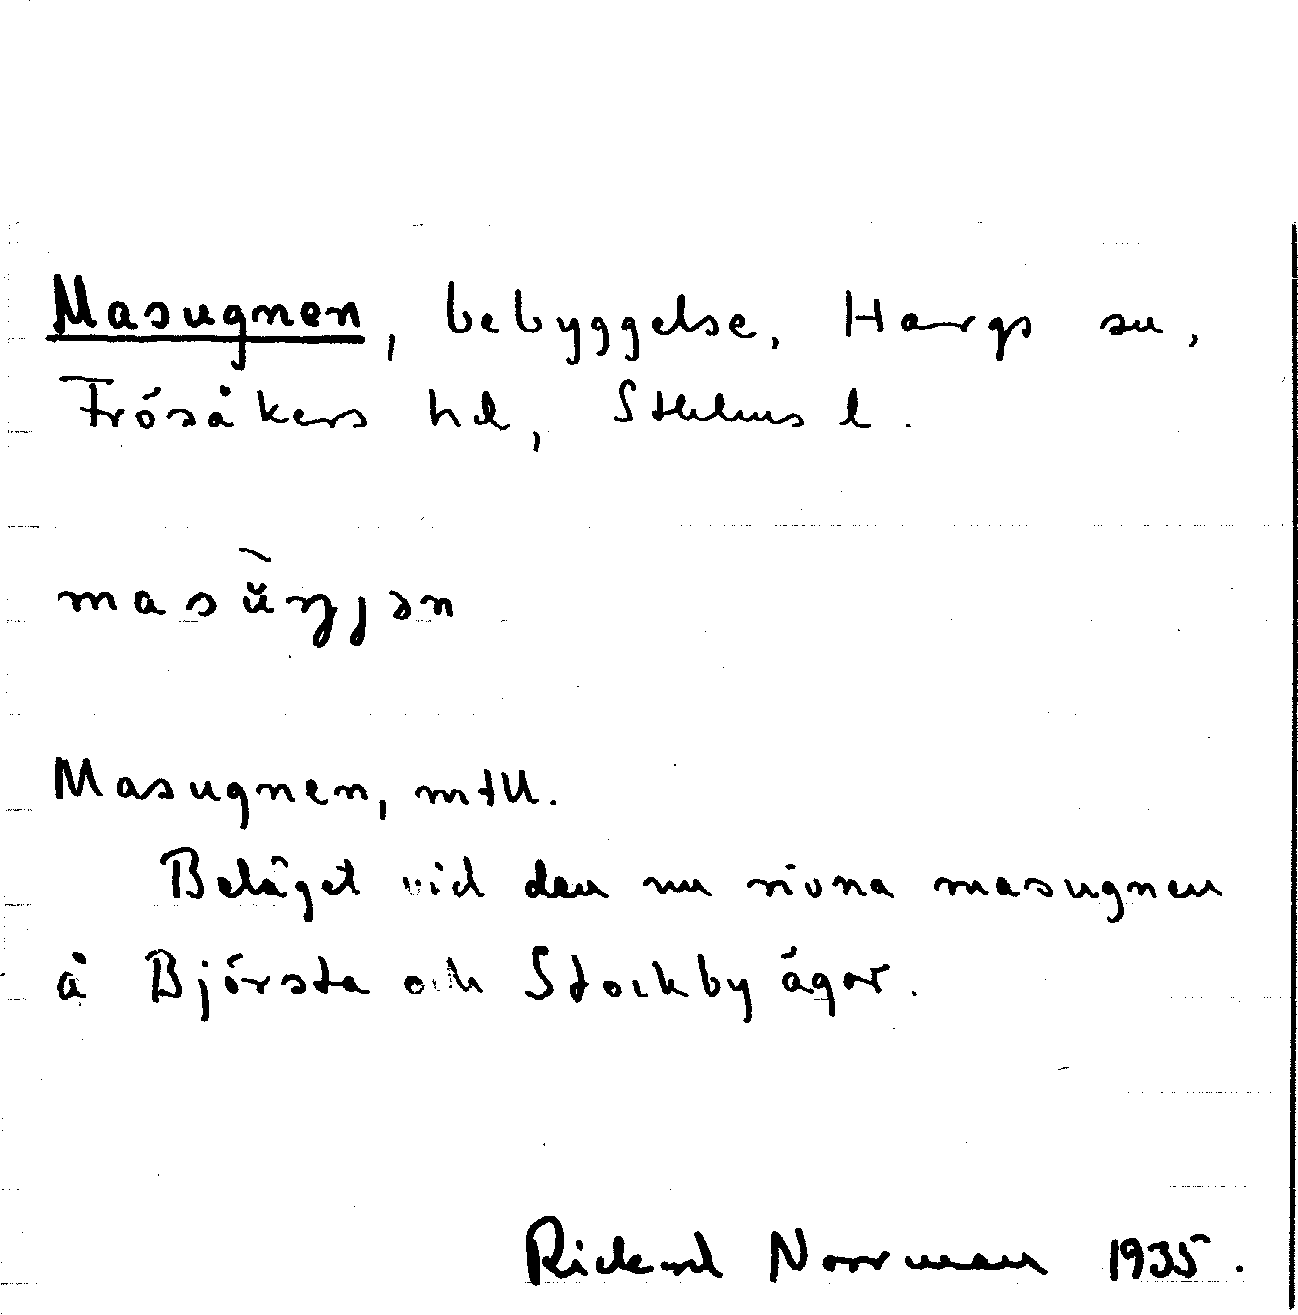 Masugnen, bebyggelse, Hargs sn,
Frösåkers hd, Sthlms l.
masŭŋjən
Masugnen, mtU.
Beläget vid den nu rivna masugnen
å Björsta och Stockby ägor.
Rickard Norrman 1935.